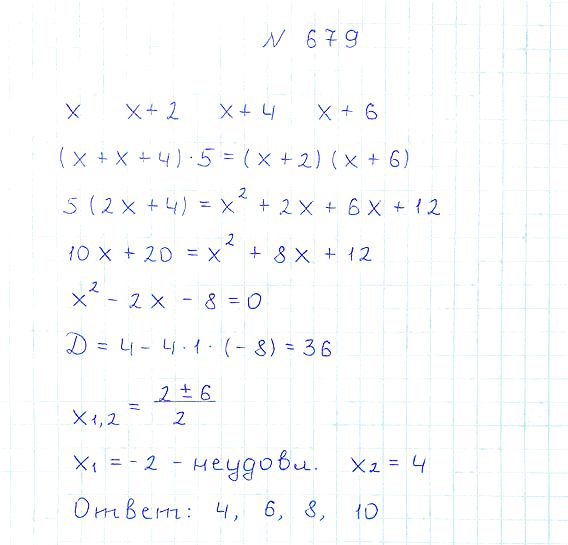 N 679
x x+2 x+4 x+6
(x+x+4)·5=(x+2)(x+6)
5(2x+4)=x²+2x+6x+12
10x+20=x²+8x+12
x²-2x-8=0
D=4-4·1·(-8)=36
x₁,₂=(2±6)/2
x₁=-2-неудовл. x₂=4
Ответ: 4, 6, 8, 10